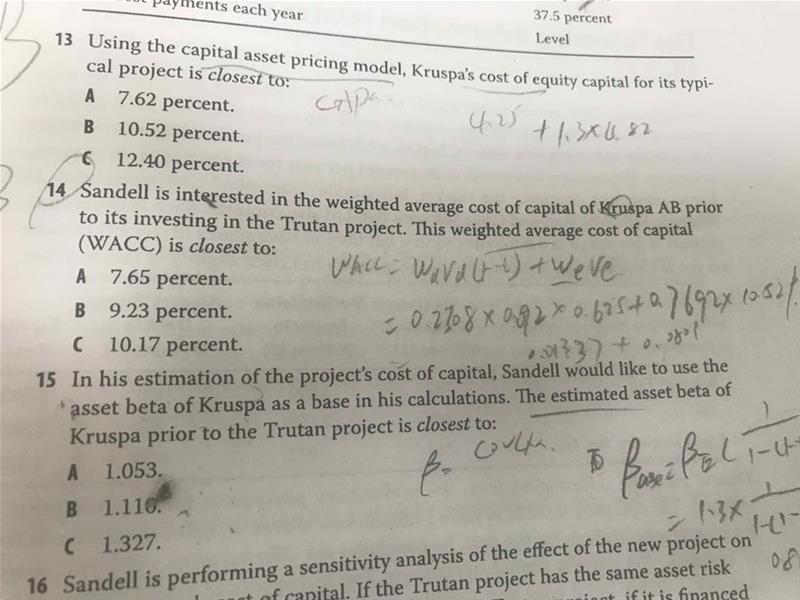 payments each year
37.5 percent
Level
13 Using the capital asset pricing model, Kruspa's cost of equity capital for its typi-
cal project is closest to:
A 7.62 percent.
B 10.52 percent.
C 12.40 percent.
4.25 + 1.3×4.82
14 Sandell is interested in the weighted average cost of capital of Kruspa AB prior
to its investing in the Trutan project. This weighted average cost of capital
(WACC) is closest to:
WACC = Wdrd(1-t) + were
A 7.65 percent.
B 9.23 percent.
= 0.2308 × 0.092 × 0.625 + 0.7692 × 10.52%
C 10.17 percent.
0.01337 + 0.0801
15 In his estimation of the project's cost of capital, Sandell would like to use the
asset beta of Kruspa as a base in his calculations. The estimated asset beta of
Kruspa prior to the Trutan project is closest to:
A 1.053.
B 1.110.
C 1.327.
β=
= 1.3×
16 Sandell is performing a sensitivity analysis of the effect of the new project on
cost of capital. If the Trutan project has the same asset risk
if it is financed